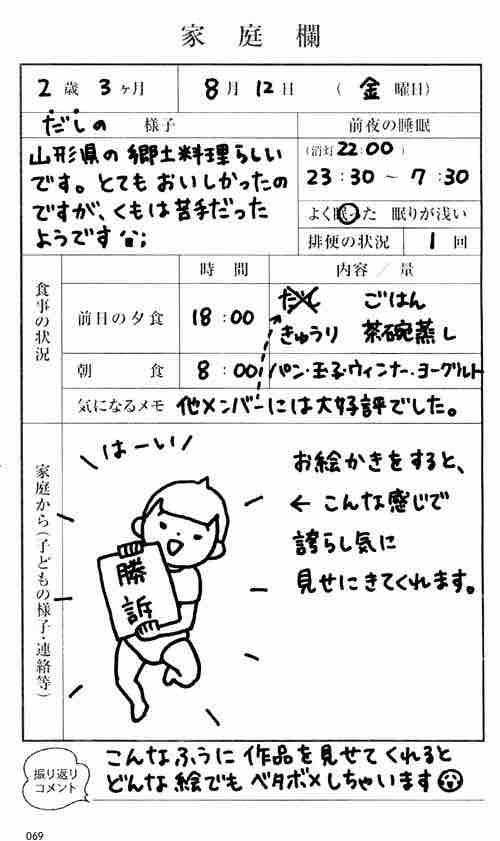 家庭欄
2歳3ヶ月 8月12日 (金曜日)
だしの 様子
山形県の郷土料理らしい
です。とてもおいしかったの
ですが、くもは苦手だった
ようです
前夜の睡眠
(消灯22:00)
23:30~7:30
よく眠った 眠りが浅い
排便の状況 1回
食事の状況
時間 内容/量
前日の夕食 18:00 だし ごはん
きゅうり 茶碗蒸し
朝食 8:00 パン・玉子・ウィンナー・ヨーグルト
気になるメモ 他メンバーには大好評でした。
家庭から(子どもの様子・連絡等)
はーい!
勝訴
お絵かきをすると、
←こんな感じで
誇らし気に
見せにきてくれます。
振り返り
コメント
こんなふうに作品を見せてくれると
どんな絵でもベタボメしちゃいます
069